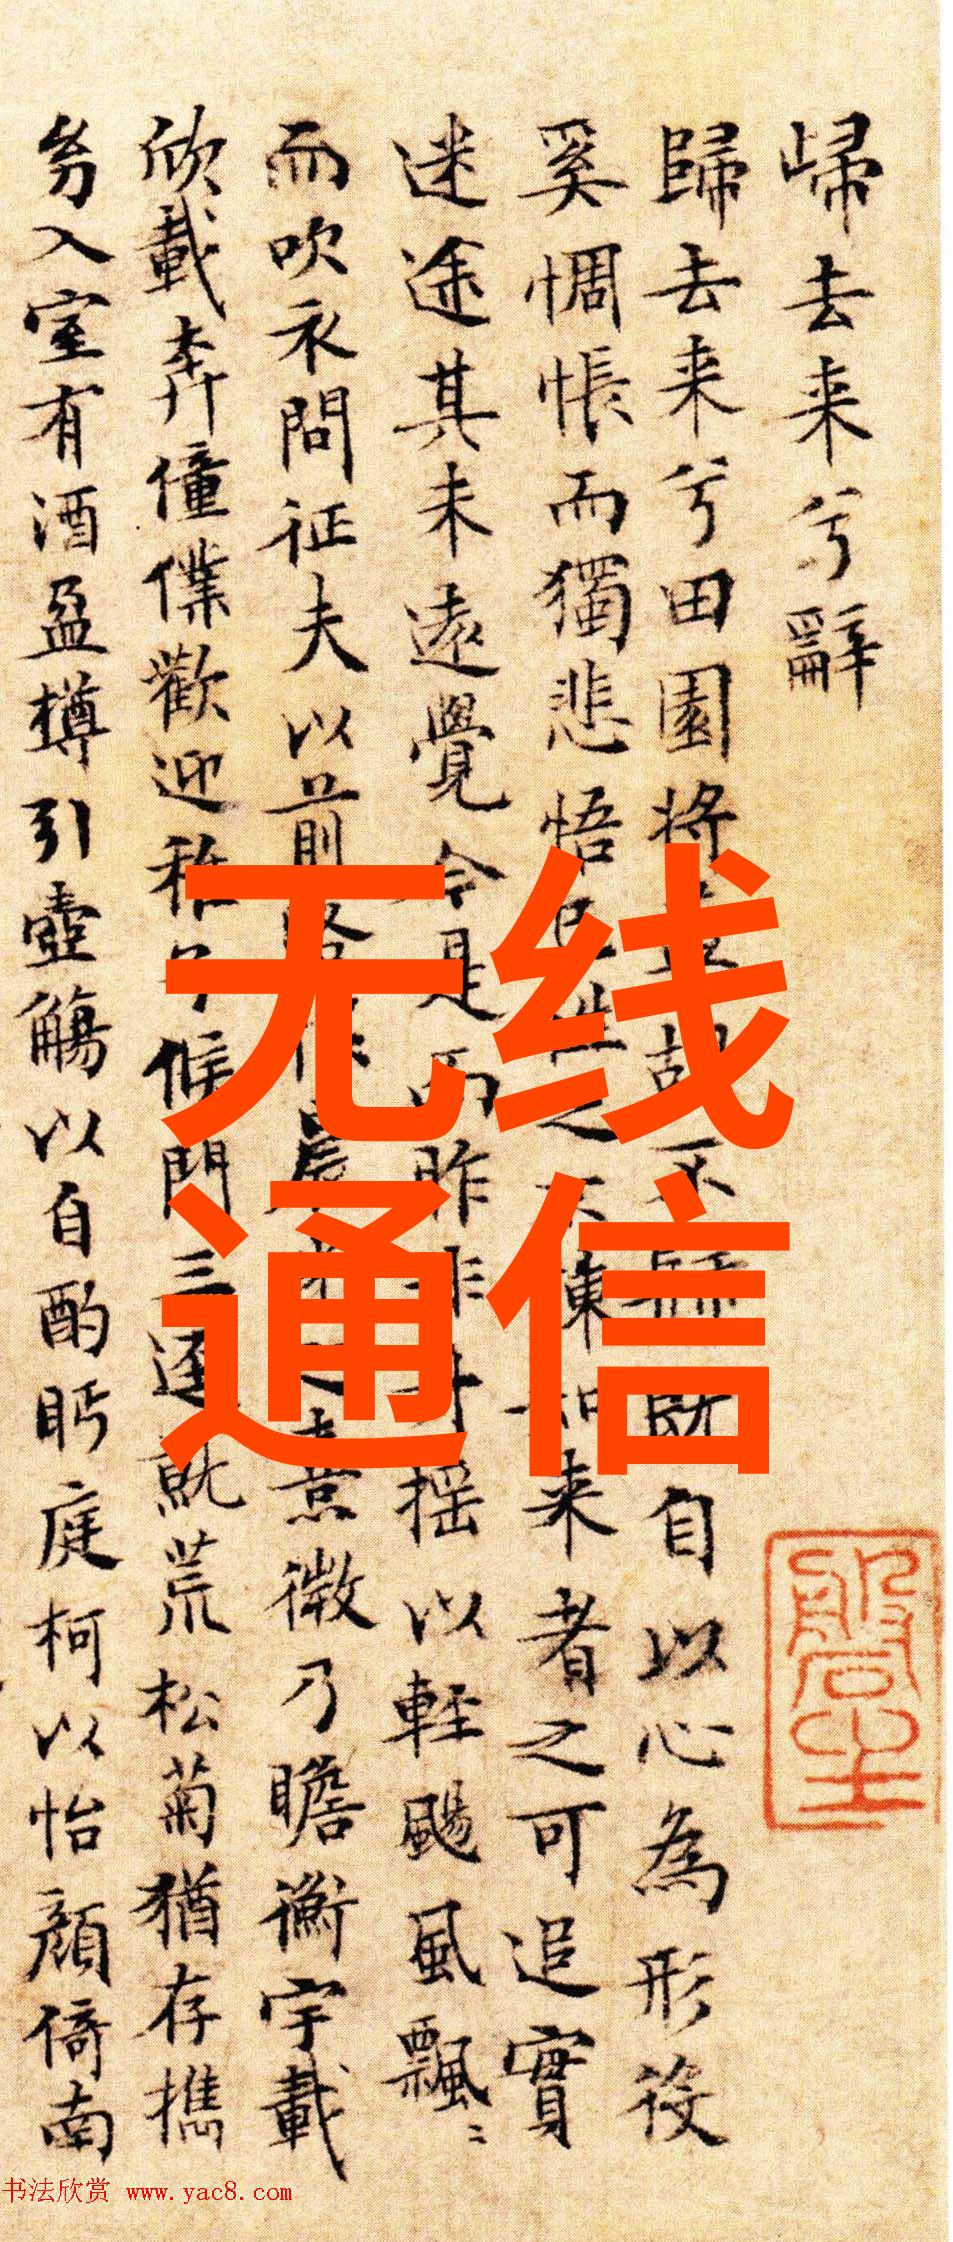 歸去来兮辭
歸去来兮田園将不自以心為形役
奚惆悵而獨悲悟之諫如来者之可追實
迷途其未遠覺今是而昨非舟揺以輕颺風飄〻
而吹衣問征夫以前晨意微乃瞻衡宇載
欣載奔僮僕歡迎稚子候門三逕就荒松菊猶存攜
㓜入室有酒盈樽引壺觴以自酌眄庭柯以怡顔倚南
无线
通信
书法欣赏 www.yac8.com